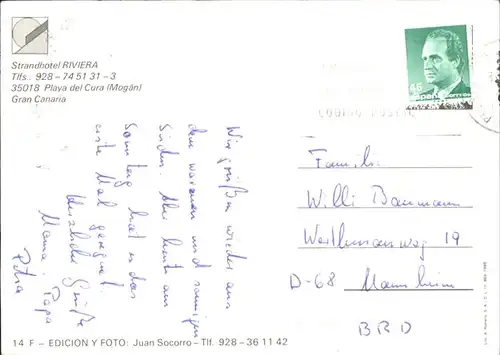 Strandhotel RIVIERA
Tlfs.: 928 - 74 51 31 - 3
35018 Playa del Cura (Mogán)
Gran Canaria
46
España
Wir grüßen wieder aus
dem warmen und sonnigen
Süden. Aber heute am
Sonntag hat es das
erste Mal geregnet.
Herzliche Grüße
Mama. Papa
Petra
Familie
Willi Baumann
19
D-68 Mannheim
BRD
14 F - EDICION Y FOTO: Juan Socorro - Tlf. 928 - 36 11 42